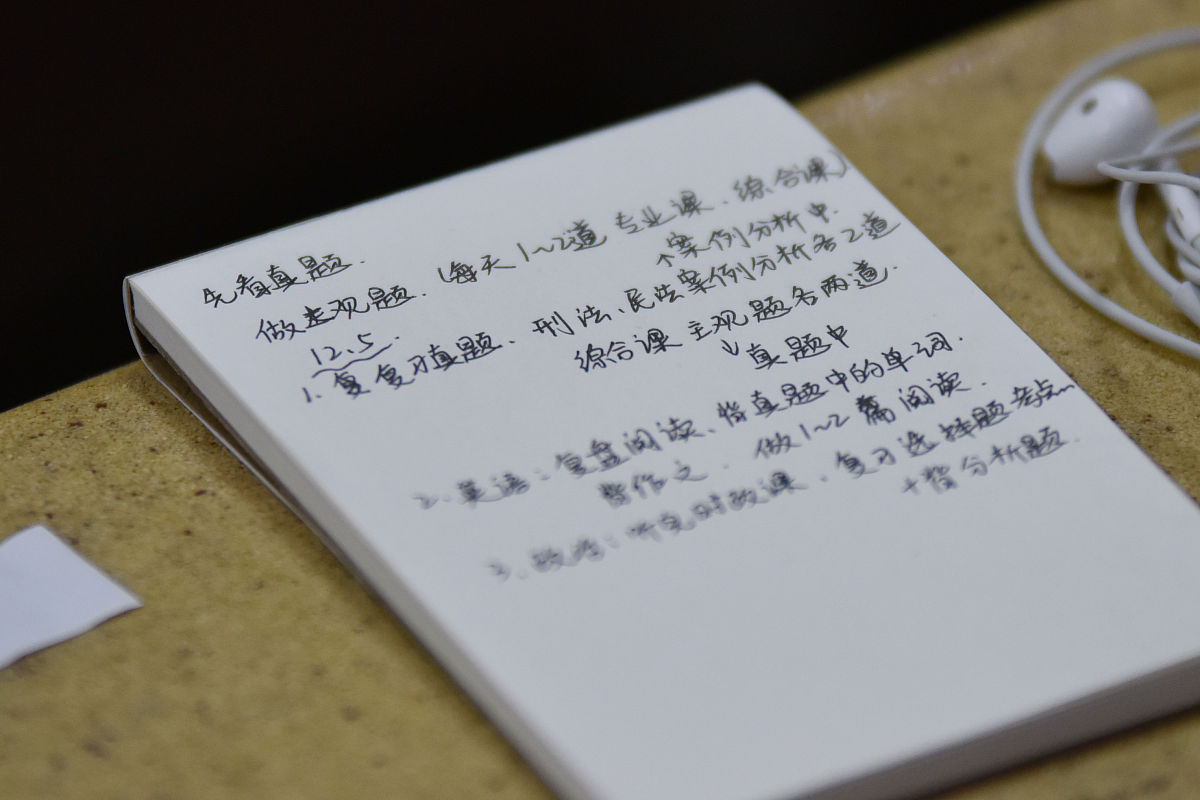 先看真题.
做主观题.(每天1~2道 专业课、综合课)
↑案例分析中.
12.5.
1.复复习真题、刑法、民法案例分析各2道
综合课 主观题各两道.
↓真题中
2.英语:复盘阅读、背真题中的单词.
背作文.做1~2篇阅读.
3.政治:听完时政课、复习选择题考点
+背分析题.